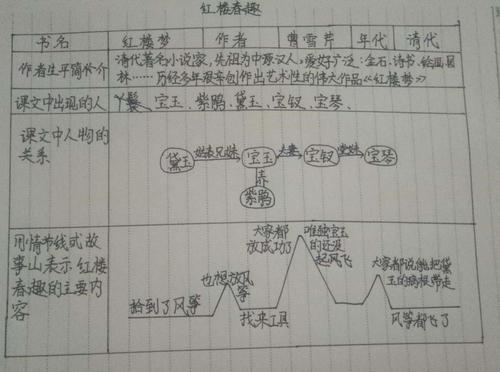 红楼春趣
书名 红楼梦 作者 曹雪芹 年代 清代
作者生平简介 清代著名小说家,先祖为中原汉人,爱好广泛:金石、诗书、绘画、园
林……历经多年艰辛创作出艺术性的伟大作品《红楼梦》
课文中出现的人 丫鬟、宝玉、紫鹃、黛玉、宝钗、宝琴、
课文中人物的
关系
黛玉 姑表兄妹 宝玉 夫妻 宝钗 堂妹 宝琴
紫鹃
用情节线或故
事山表示红楼
春趣的主要内
容
拾到了风筝
也想放风
筝
找来工具
大家都
放成功了
唯独宝玉
的还没
起风飞
大家都说能把黛
玉的病根带走
风筝都飞了